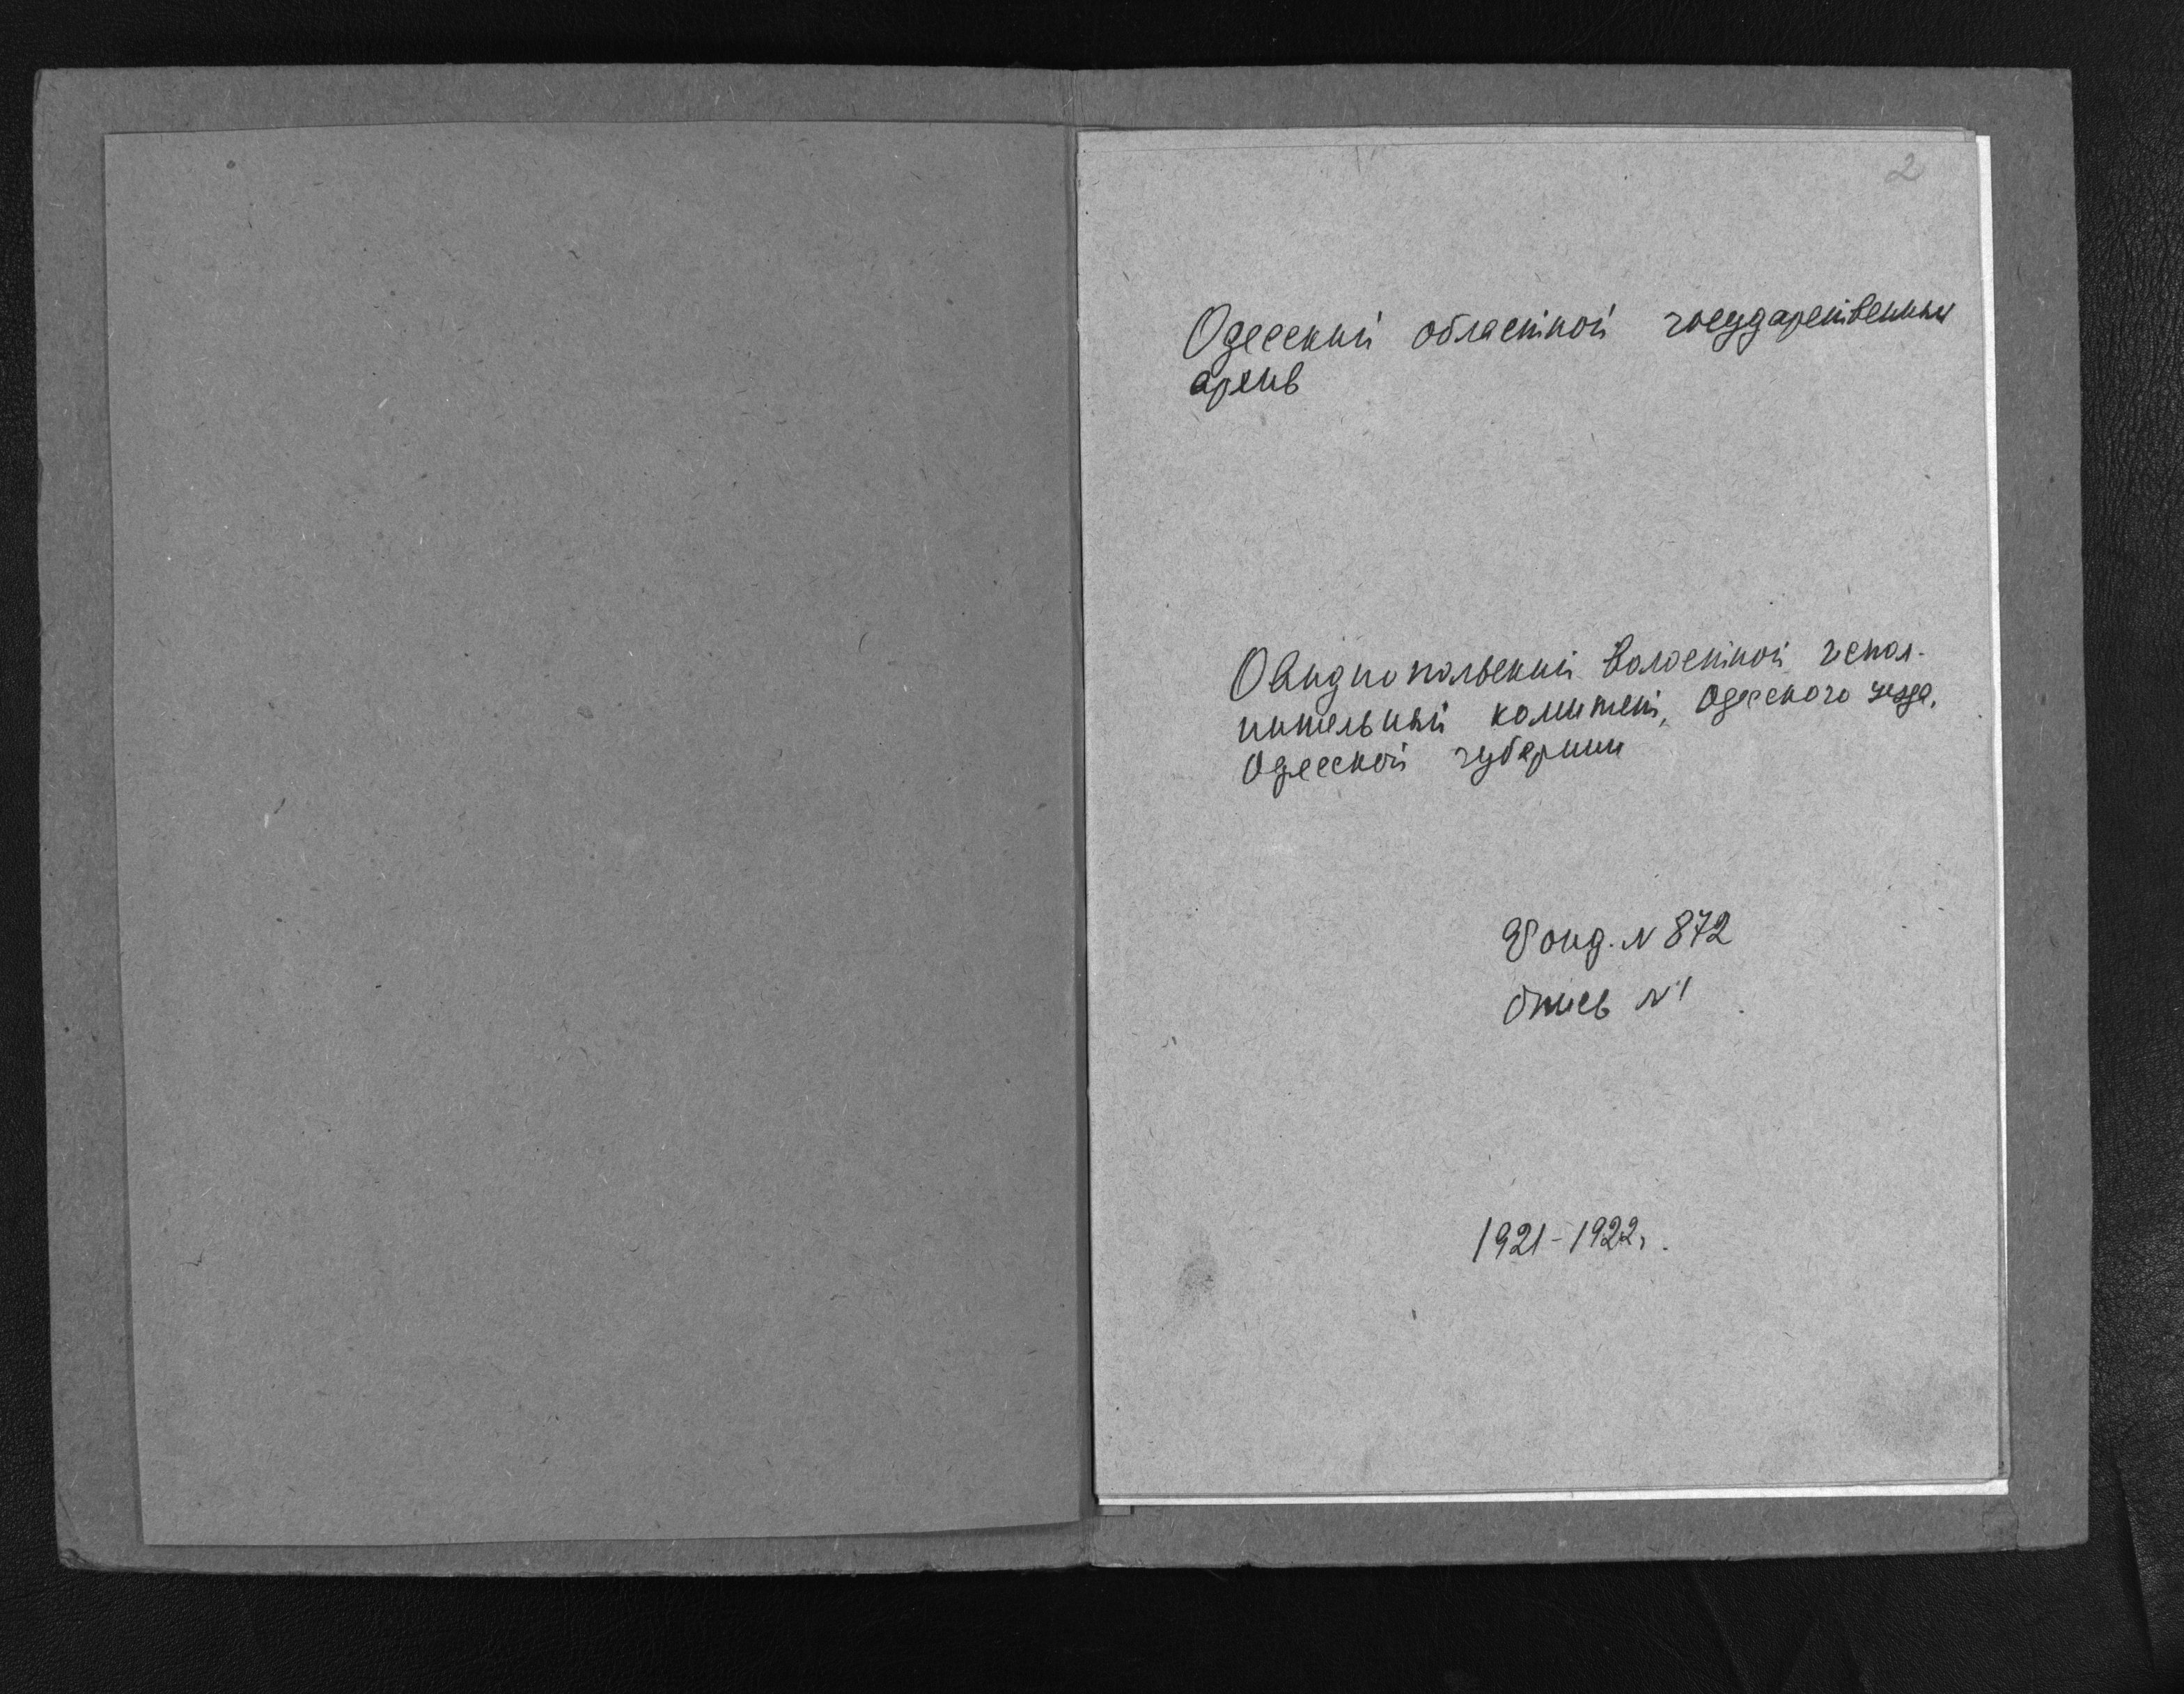 2
Одесский областной государственный
архив
Овидиопольский волостной испол-
нительный комитет, Одесского уезда,
Одесской губернии
Фонд. N 872
Опись N 1
1921-1922г.